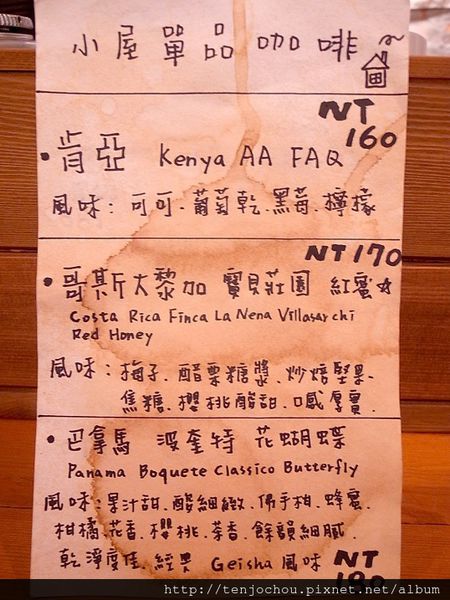 小屋單品咖啡
NT
160
• 肯亞 Kenya AA FAQ
風味:可可、葡萄乾、黑莓、檸檬
NT 170
• 哥斯大黎加 寶貝莊園 紅蜜
Costa Rica Finca La Nena Villasarchi
Red Honey
風味:梅子、醋栗糖漿、炒焙堅果、
焦糖、櫻桃酸甜、口感厚實
• 巴拿馬 波奎特 花蝴蝶
Panama Boquete Classico Butterfly
風味:果汁甜、酸細緻、佛手柑、蜂蜜、
柑橘、花香、櫻桃、茶香、餘韻細膩、
乾淨度佳 經典 Geisha 風味 NT
http://tenjochou.pixnet.net/album